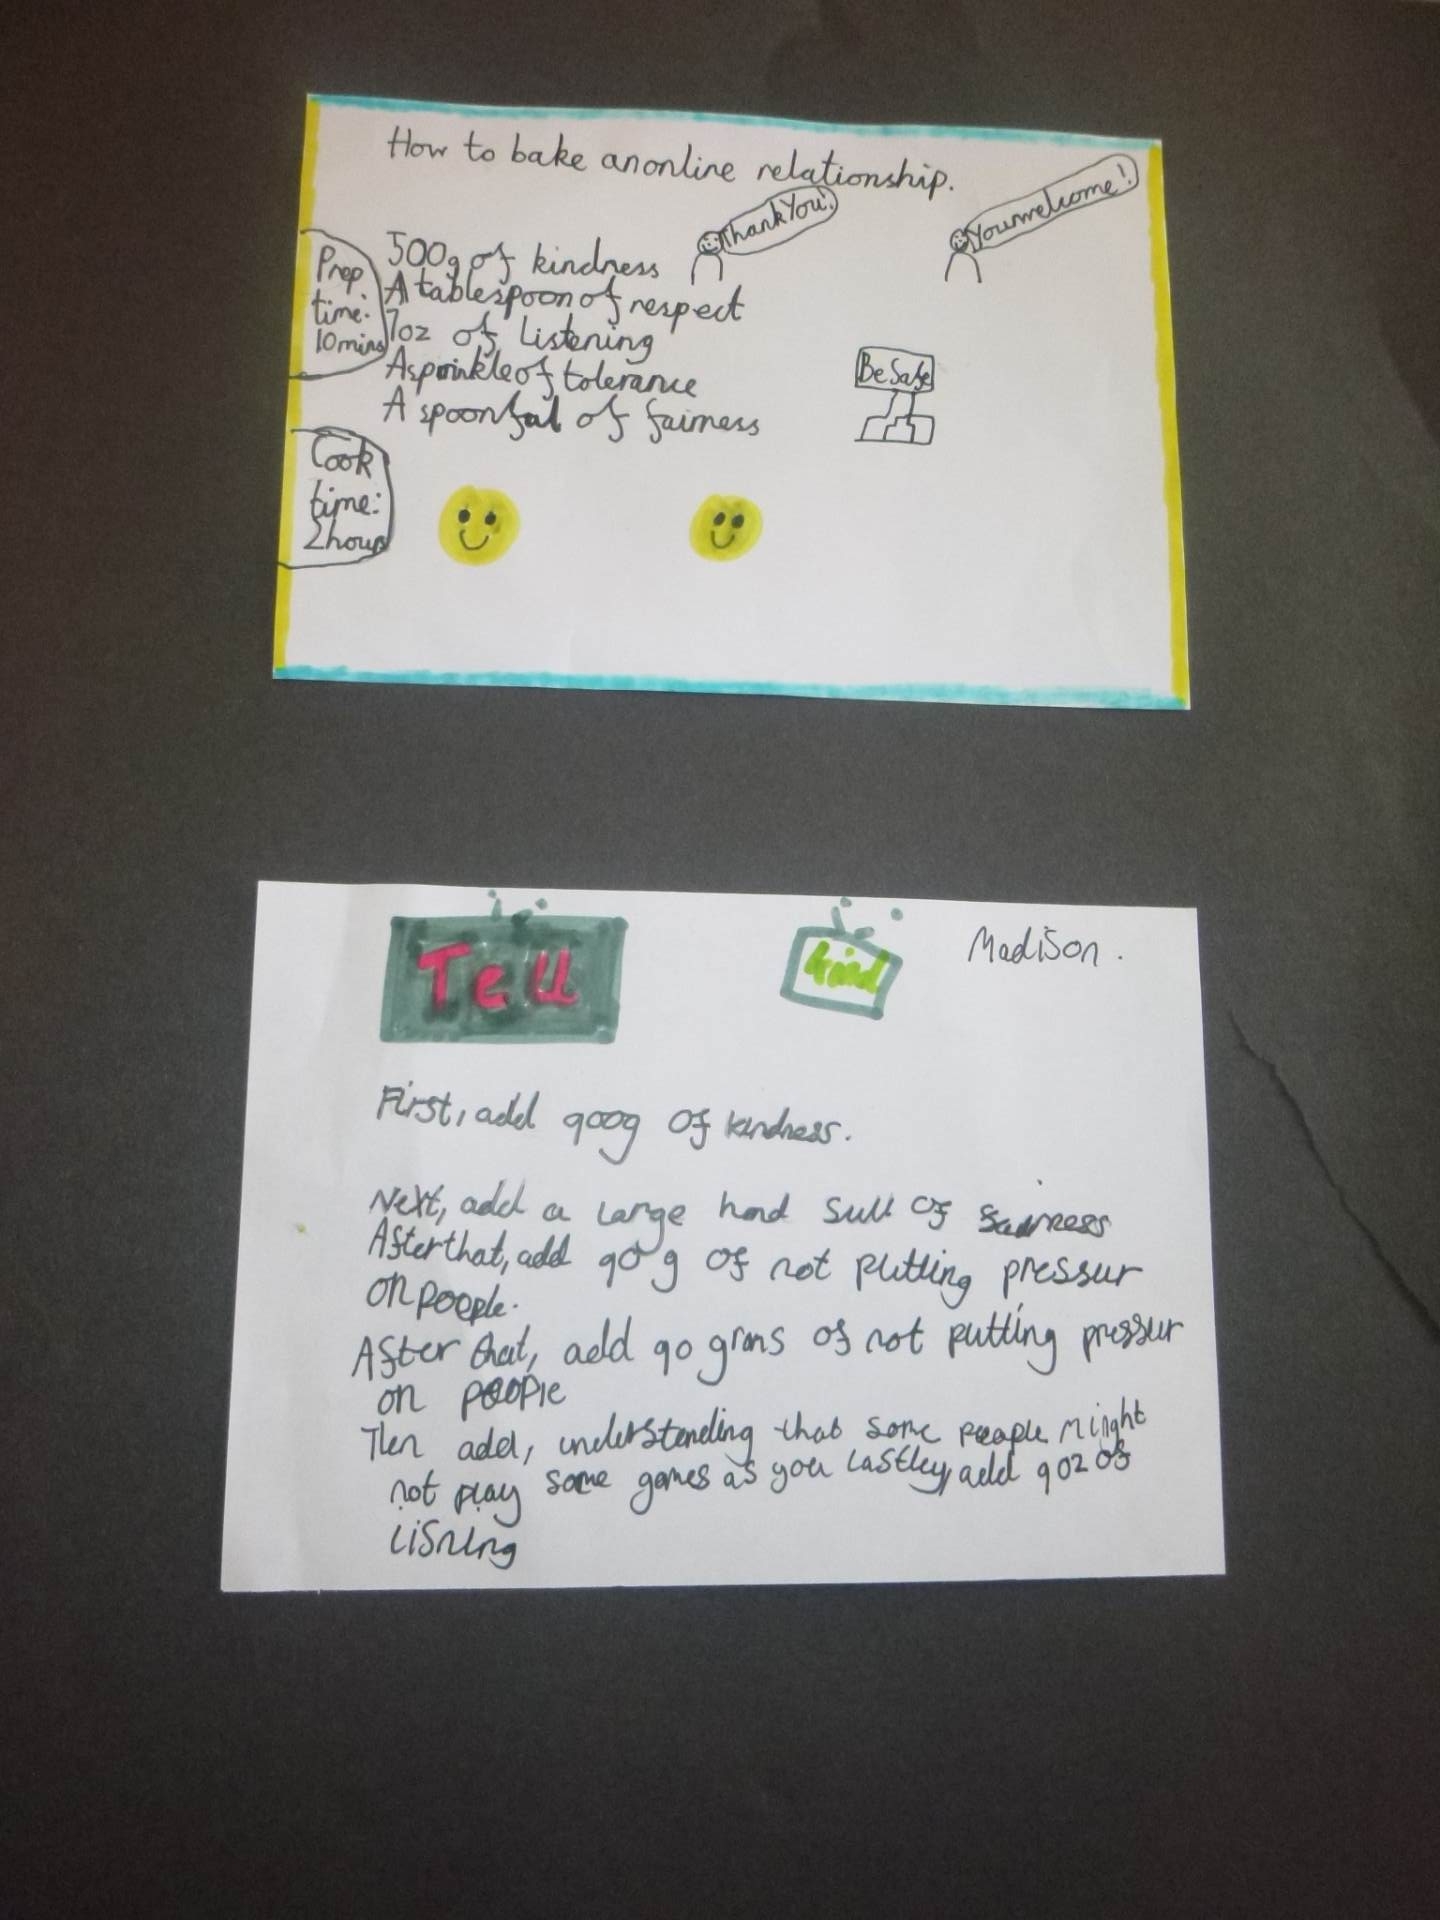 How to bake an online relationship.
Thank You!
Your welcome!
Prep
time:
10 mins
500g of kindness
A tablespoon of respect
7oz of listening
A sprinkle of tolerance
A spoonful of fairness
Be Safe
Cook
time:
2 hours
Tell
kind
Madison.
First, add 900g of kindness.
Next, add a large hand full of fairness
After that, add 90g of not putting pressur
on poeple.
After that, add 90 grams of not putting pressur
on people
Then add, understanding that some people minght
not play some games as you lastley, add 9oz of
lisning